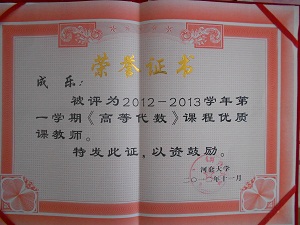 荣誉证书
成乐：
被评为2012-2013学年第
一学期《高等代数》课程优质
课教师。
特发此证，以资鼓励。
河北大学
二〇一二年十一月